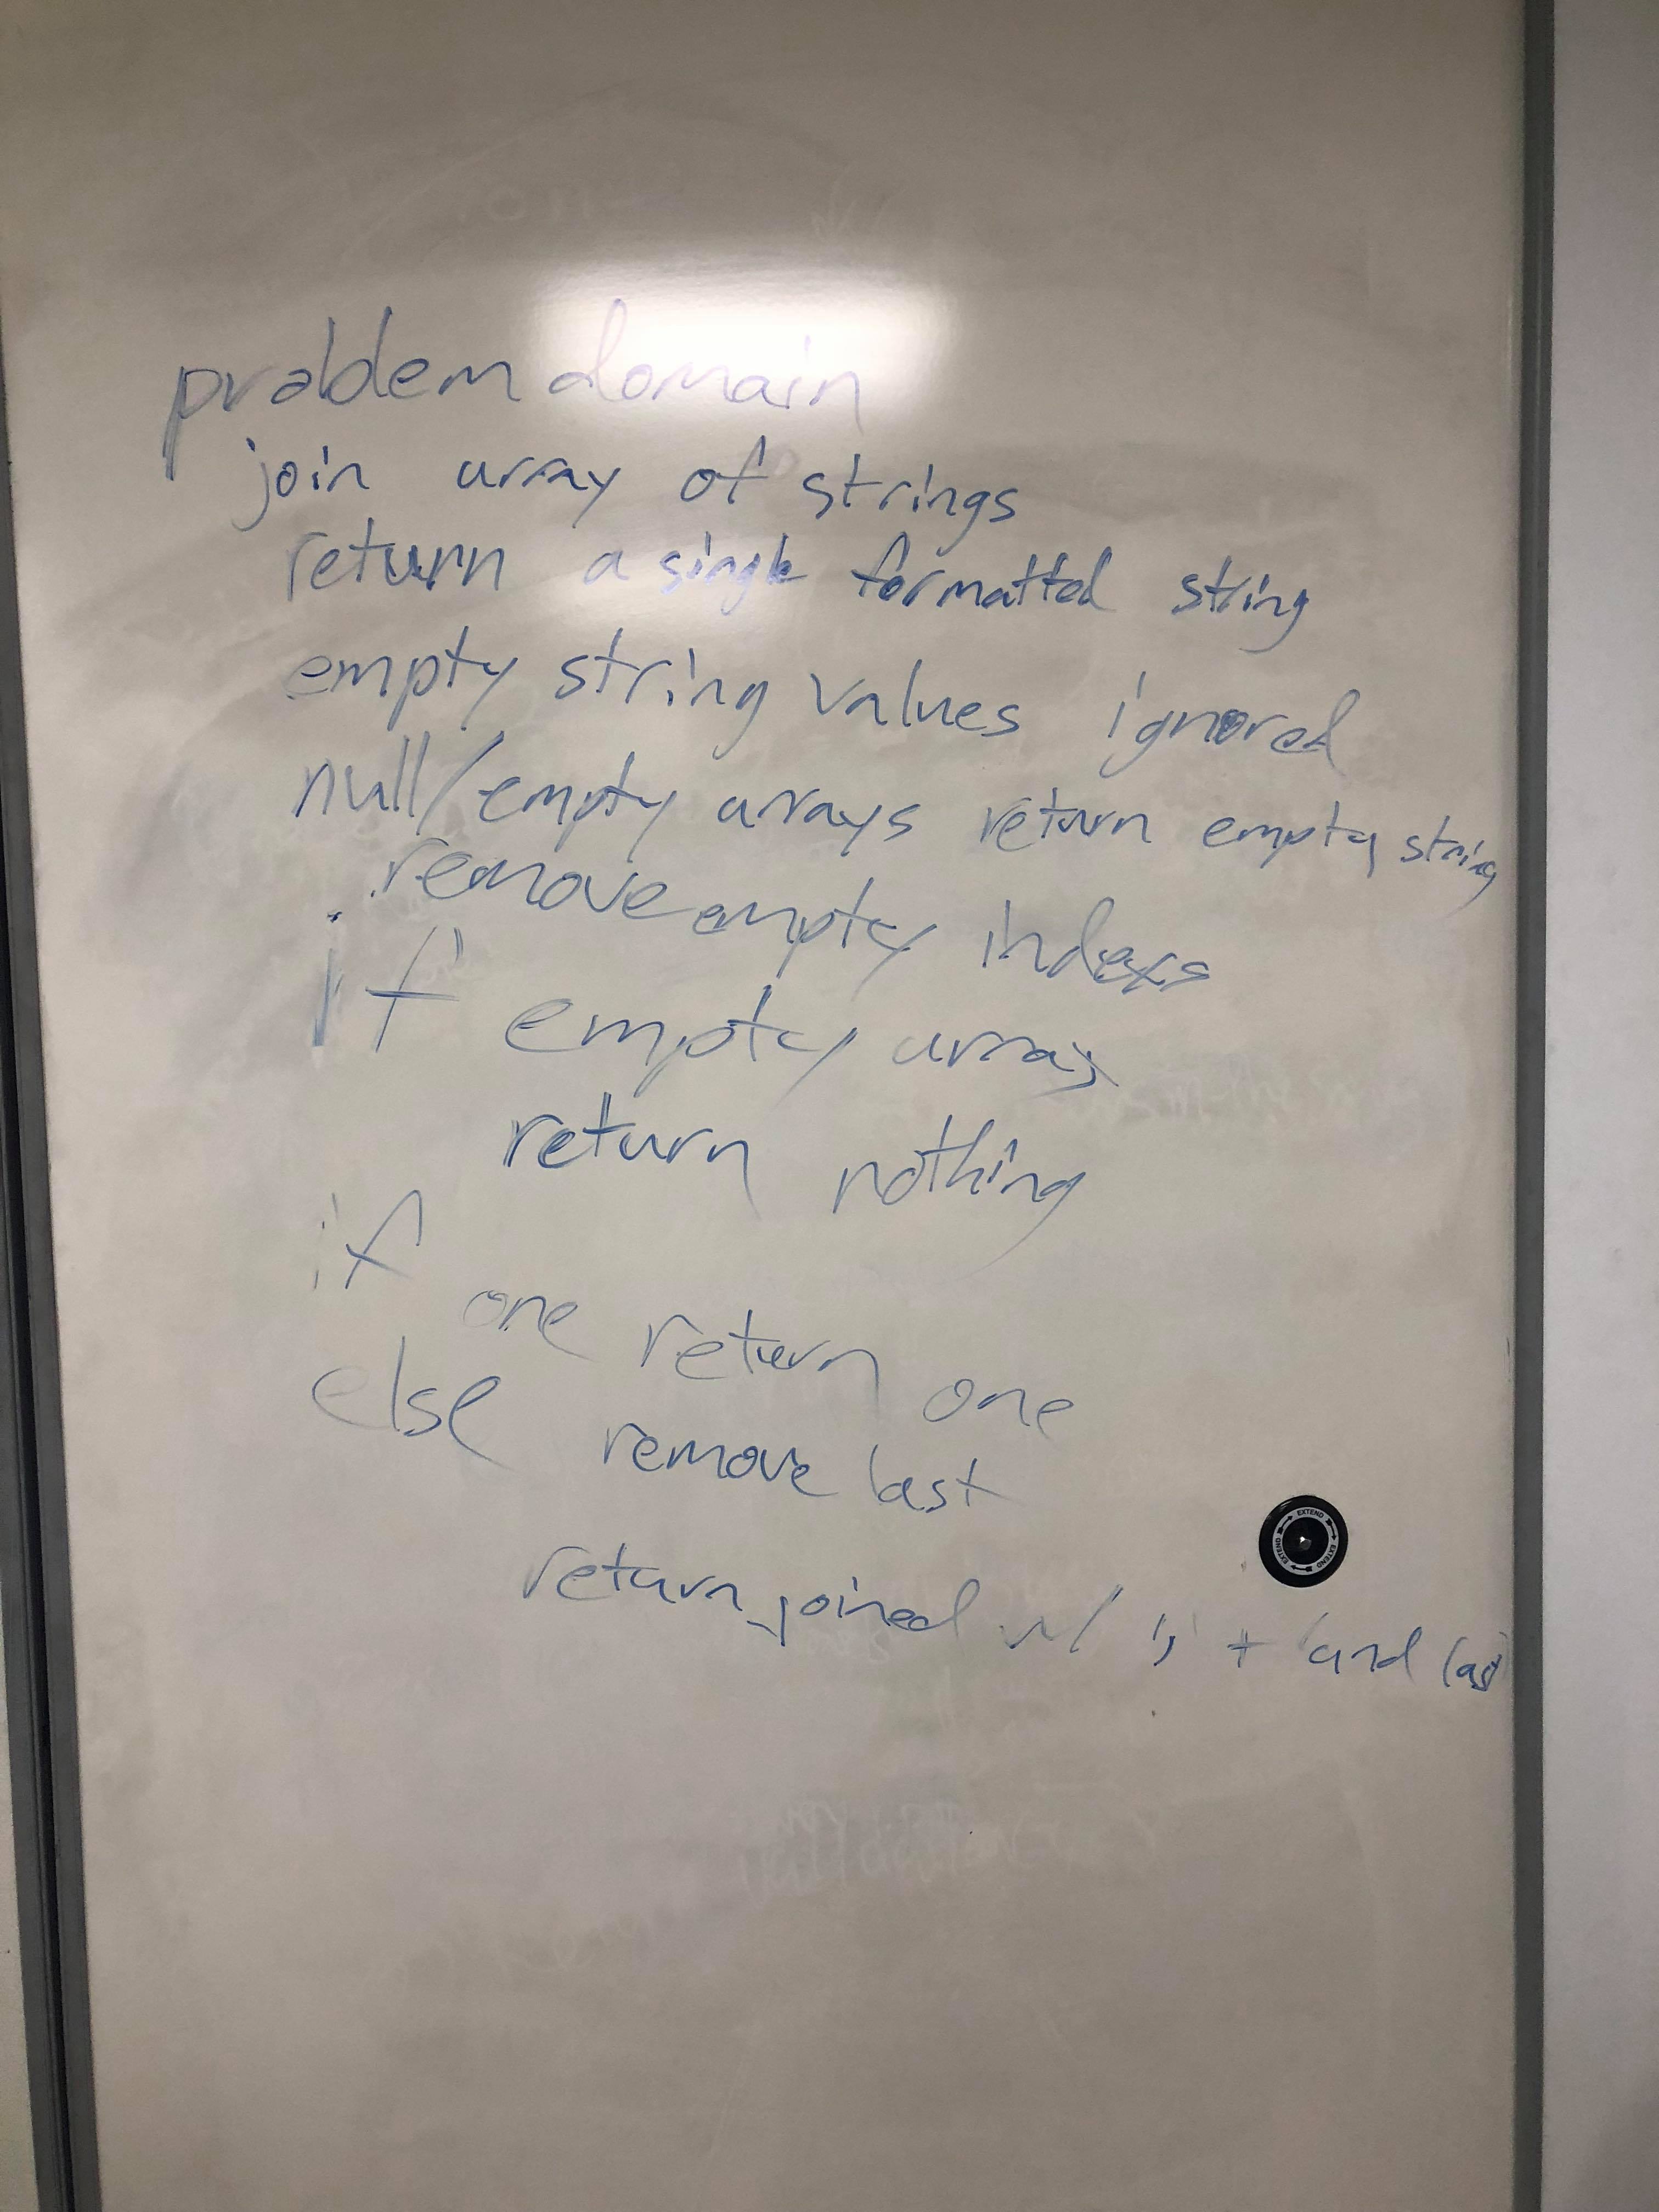 problem domain
join array of strings
return a single formatted string
empty string values ignored
null/empty arrays return empty string
remove empty indexs
if empty array
return nothing
if one return one
else remove last
return joined w/ ', ' + 'and last
EXTEND EXTEND EXTEND EXTEND